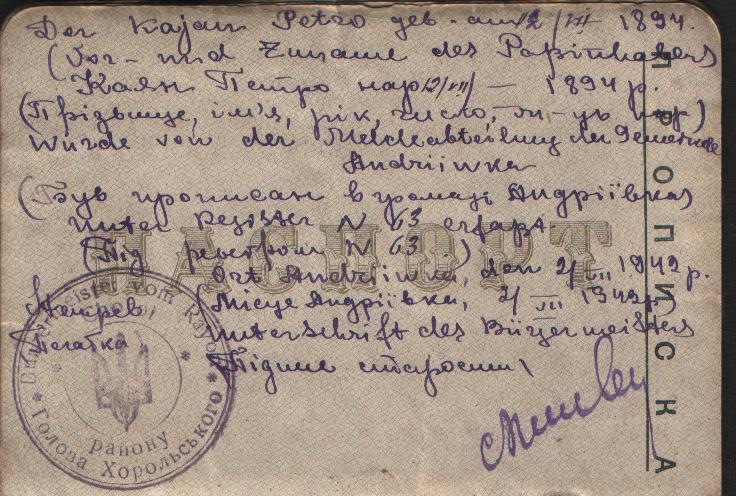 Der Kajan Petro geb. am 12/VII 1894.
(Vor- und Zuname des Paßinhabers
Каян Петро нар 12/VII – 1894 р.
(Прізвище, ім'я, рік, число, м-ць нар)
Wurde von der Meldeabteilung der Gemeinde
Andriiwka
(Був прописан в громаді Андріївка
unter Register N 63 erfaßt
(Під реєстром N 63)
Ort Andriiwka, den 2/VII 1942 р.
Stempel, (Місце Андріївка, 2/VII 1942р)
Печатка Unterschrift des Bürgermeisters
Підпис старости
ПАСПОРТ
ПРОПИСКА
vom Ray
Голова Хорольського
району